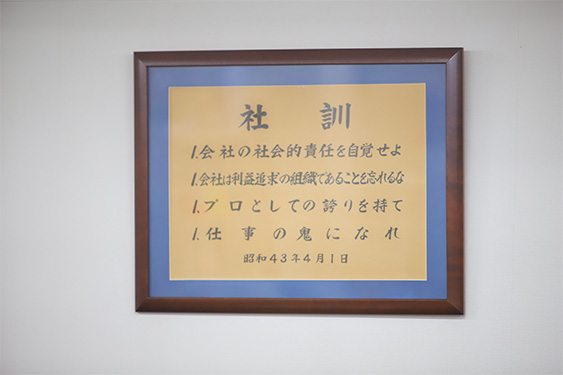 社訓
1.会社の社会的責任を自覚せよ
1.会社は利益追求の組織であることを忘れるな
1.プロとしての誇りを持て
1.仕事の鬼になれ
昭和43年4月1日